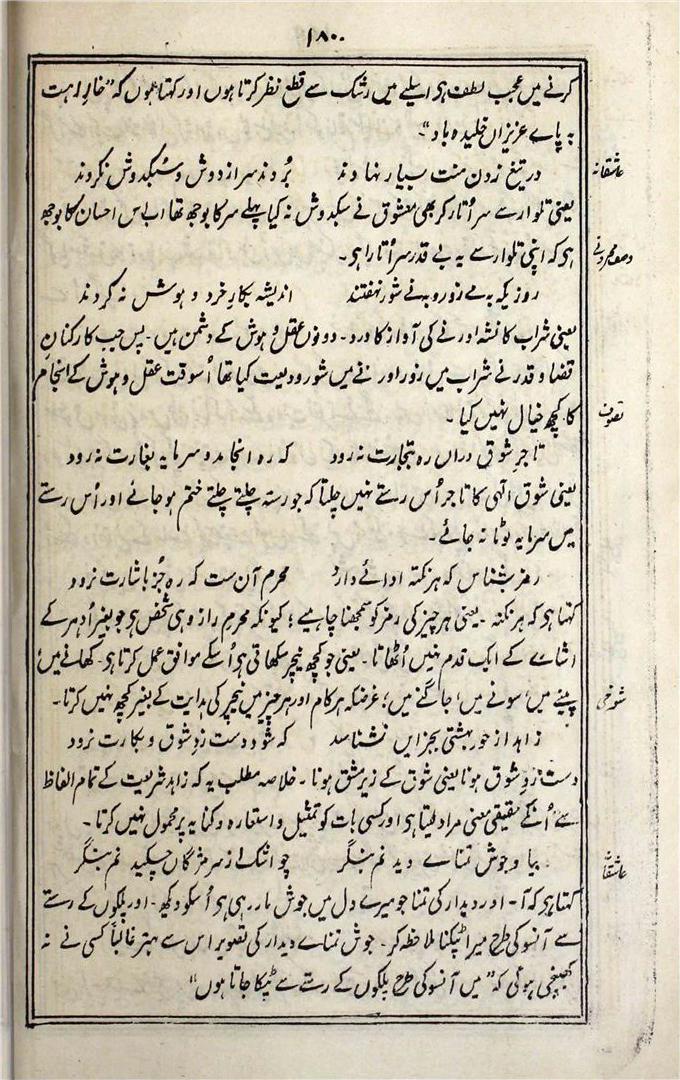 ۱۸۰
کرنے میں عجب لطف ہی اسلیے میں رشک سے قطع نظر کرتا ہوں اور کہتا ہوں کہ "خار رہت
بہ پاے عزیزاں خلیدہ باد"۔
عاشقانہ
در تیغ زدن منت بسیار نہادند بُردند سر از دوش و سُبکدوش نکردند
یعنی تلوار سے سر اُتار کر بھی معشوق نے سبکدوش نہ کیا پہلے سر کا بوجھ تھا اب اس احسان کا بوجھ
ہی کہ اپنی تلوار سے یہ بے قدر سر اُتارا ہی۔
روزیکہ بہ مے زور و بہ نے شور نہفتند اندیشہ بکار خرد و ہوش نہ کردند
یعنی شراب کا نشہ اور نے کی آواز کا درد۔ دونوں عقل و ہوش کے دشمن ہیں۔ پس جب کارکنان
قضا و قدر نے شراب میں زور اور نے میں شور ودیعت کیا تھا اُسوقت عقل و ہوش کے انجام
کا کچھ خیال نہیں کیا۔
تصوف
تاجرِ شوق دراں رہ بتجارت نہ رود کہ رہ انجامد و سرمایہ بغارت نہ رود
یعنی شوق الٰہی کا تاجر اُس رستے نہیں چلتا کہ جو رستہ چلتے چلتے ختم ہو جائے اور اُس رستے
میں سرمایہ لوٹا نہ جائے۔
رمز بشناس کہ ہر نکتہ ادائے دارد محرم آن ست کہ رہ جُز باشارت نرود
کہتا ہی کہ ہر نکتہ۔ یعنی ہر چیز کی رمز کو سمجھنا چاہیے؛ کیونکہ محرم راز وہی شخص ہی جو بغیر اُدہر کے
اشارے کے ایک قدم نہیں اُٹھاتا۔ یعنی جو کچھ نیچر سکھاتی ہی اُسکے موافق عمل کرتا ہی۔ کھانے میں،
پینے میں، سونے میں، جاگنے میں؛ غرضکہ ہر کام اور ہر چیز میں نیچر کی ہدایت کے بغیر کچھ نہیں کرتا۔
شوخی
زاہد از حور بہشتی بجز ایں نشناسد کہ شود دست زدِ شوق و بکارت نرود
دست زدِ شوق ہونا یعنی شوق کے زیر مشق ہونا۔ خلاصہ مطلب یہ کہ زاہد شریعت کے تمام الفاظ
سے اُنکے حقیقی معنی مراد لیتا ہی اور کسی بات کو تمثیل و استعارہ و کنایہ پر محمول نہیں کرتا۔
عاشقانہ
بیا و جوش تمناے دیدنم بنگر چو اشک از سر مژگاں چکیدنم بنگر
کہتا ہی کہ آ۔ اور دیدار کی تمنا جو میرے دل میں جوش مار رہی ہی اُسکو دیکھ۔ اور پلکوں کے رستے
سے آنسو کی طرح میرا ٹپکنا ملاحظہ کر۔ جوش تمناے دیدار کی تصویر اس سے بہتر غالباً کسی نے نہ
کھینچی ہوگی کہ "میں آنسو کی طرح پلکوں کے رستے سے ٹپکا جاتا ہوں"